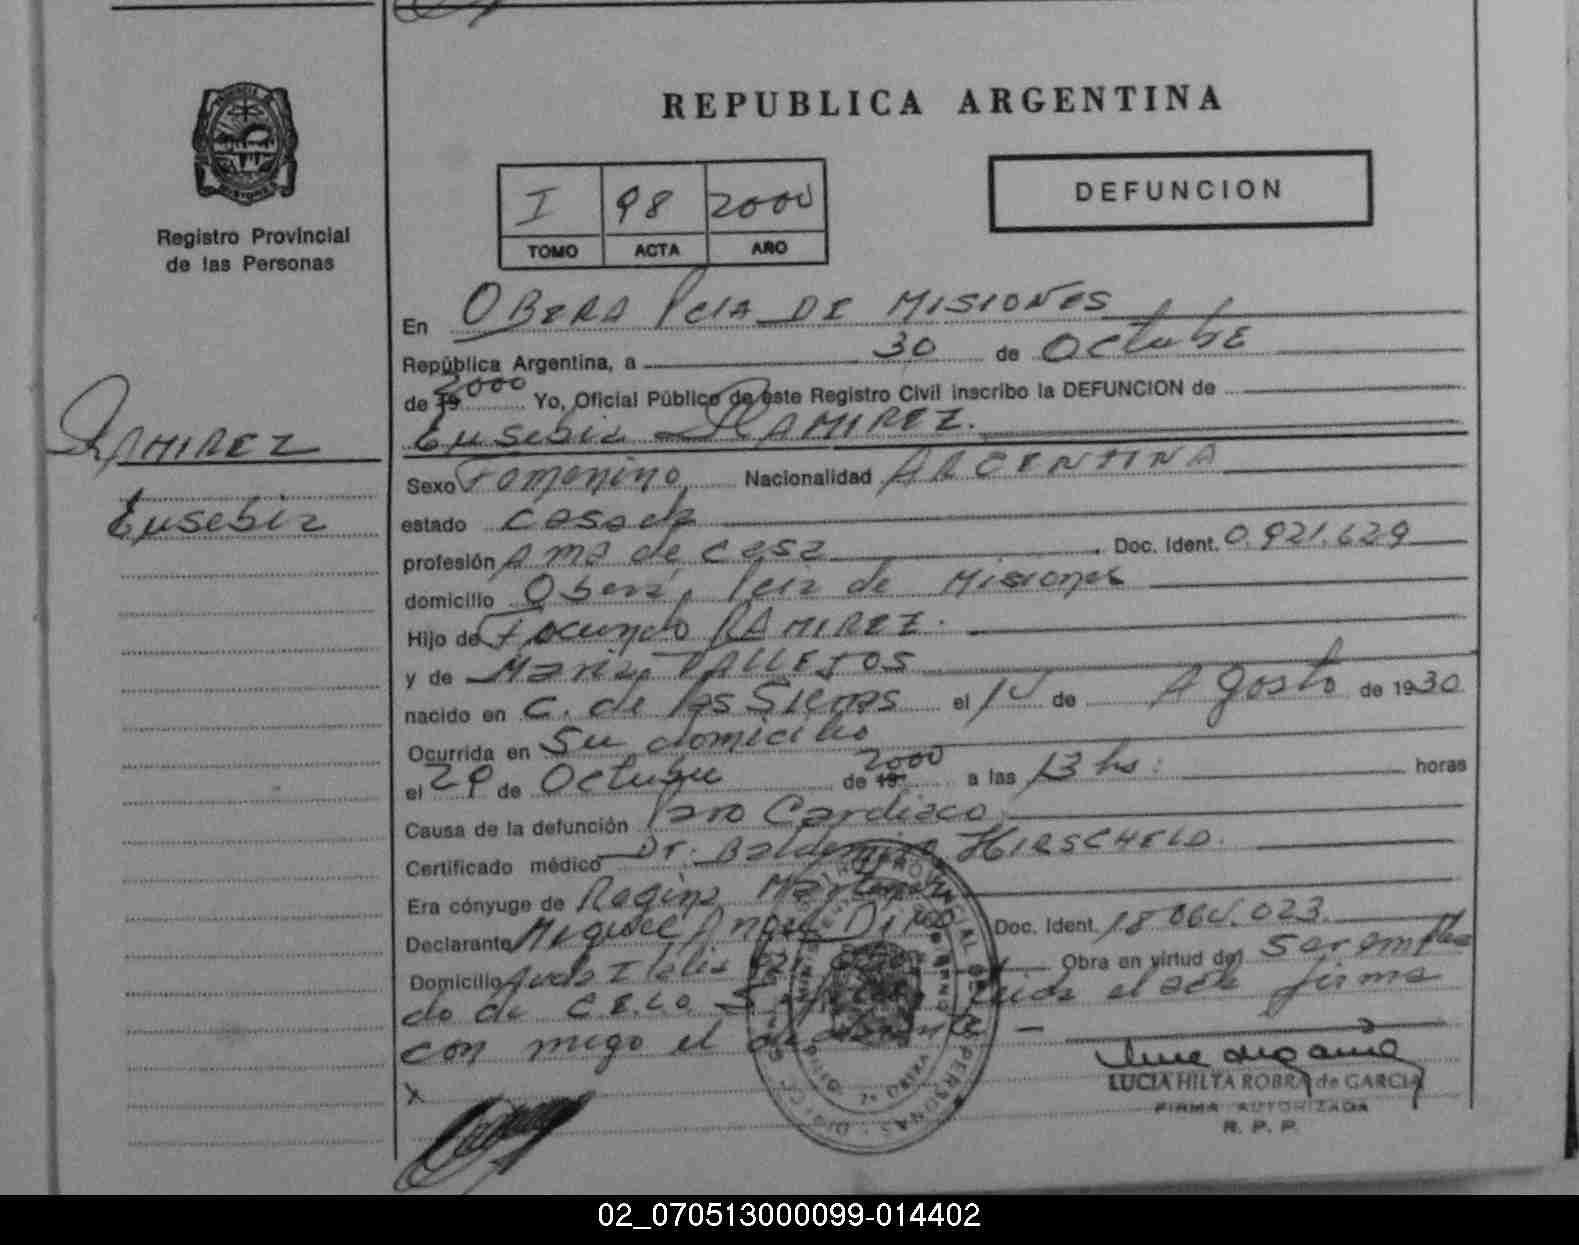 REPUBLICA ARGENTINA
Registro Provincial
de las Personas
I 98 2000
TOMO ACTA AÑO
DEFUNCION
RAMIREZ
Eusebia
En OBERA Pcia DE MISIONES
República Argentina, a 30 de Octubre
de 19 2000 Yo, Oficial Público de este Registro Civil inscribo la DEFUNCION de
Eusebia RAMIREZ.
Sexo Femenino Nacionalidad ARGENTINA
estado casada
profesión Ama de casa Doc. Ident. 0.921.629
domicilio Oberá, Pcia de Misiones
Hijo de Facundo RAMIREZ.
y de Maria VALLEJOS
nacido en C. de las Sierras el de Agosto de 1930
Ocurrida en Su domicilio
el 29 de Octubre de 19 2000 a las 13 hs. horas
Causa de la defunción Paro Cardiaco
Certificado médico Dr. HIRSCHFELD.
Era cónyuge de
Declarante Miguel Angel Doc. Ident.
Domicilio Avda Italia Obra en virtud del Ser emplea
do de C.E.L.O. leida el acta firma
con migo el
x
LUCIA HILTA ROBRA de GARCIA
FIRMA AUTORIZADA
R. P. P.
02_070513000099-014402